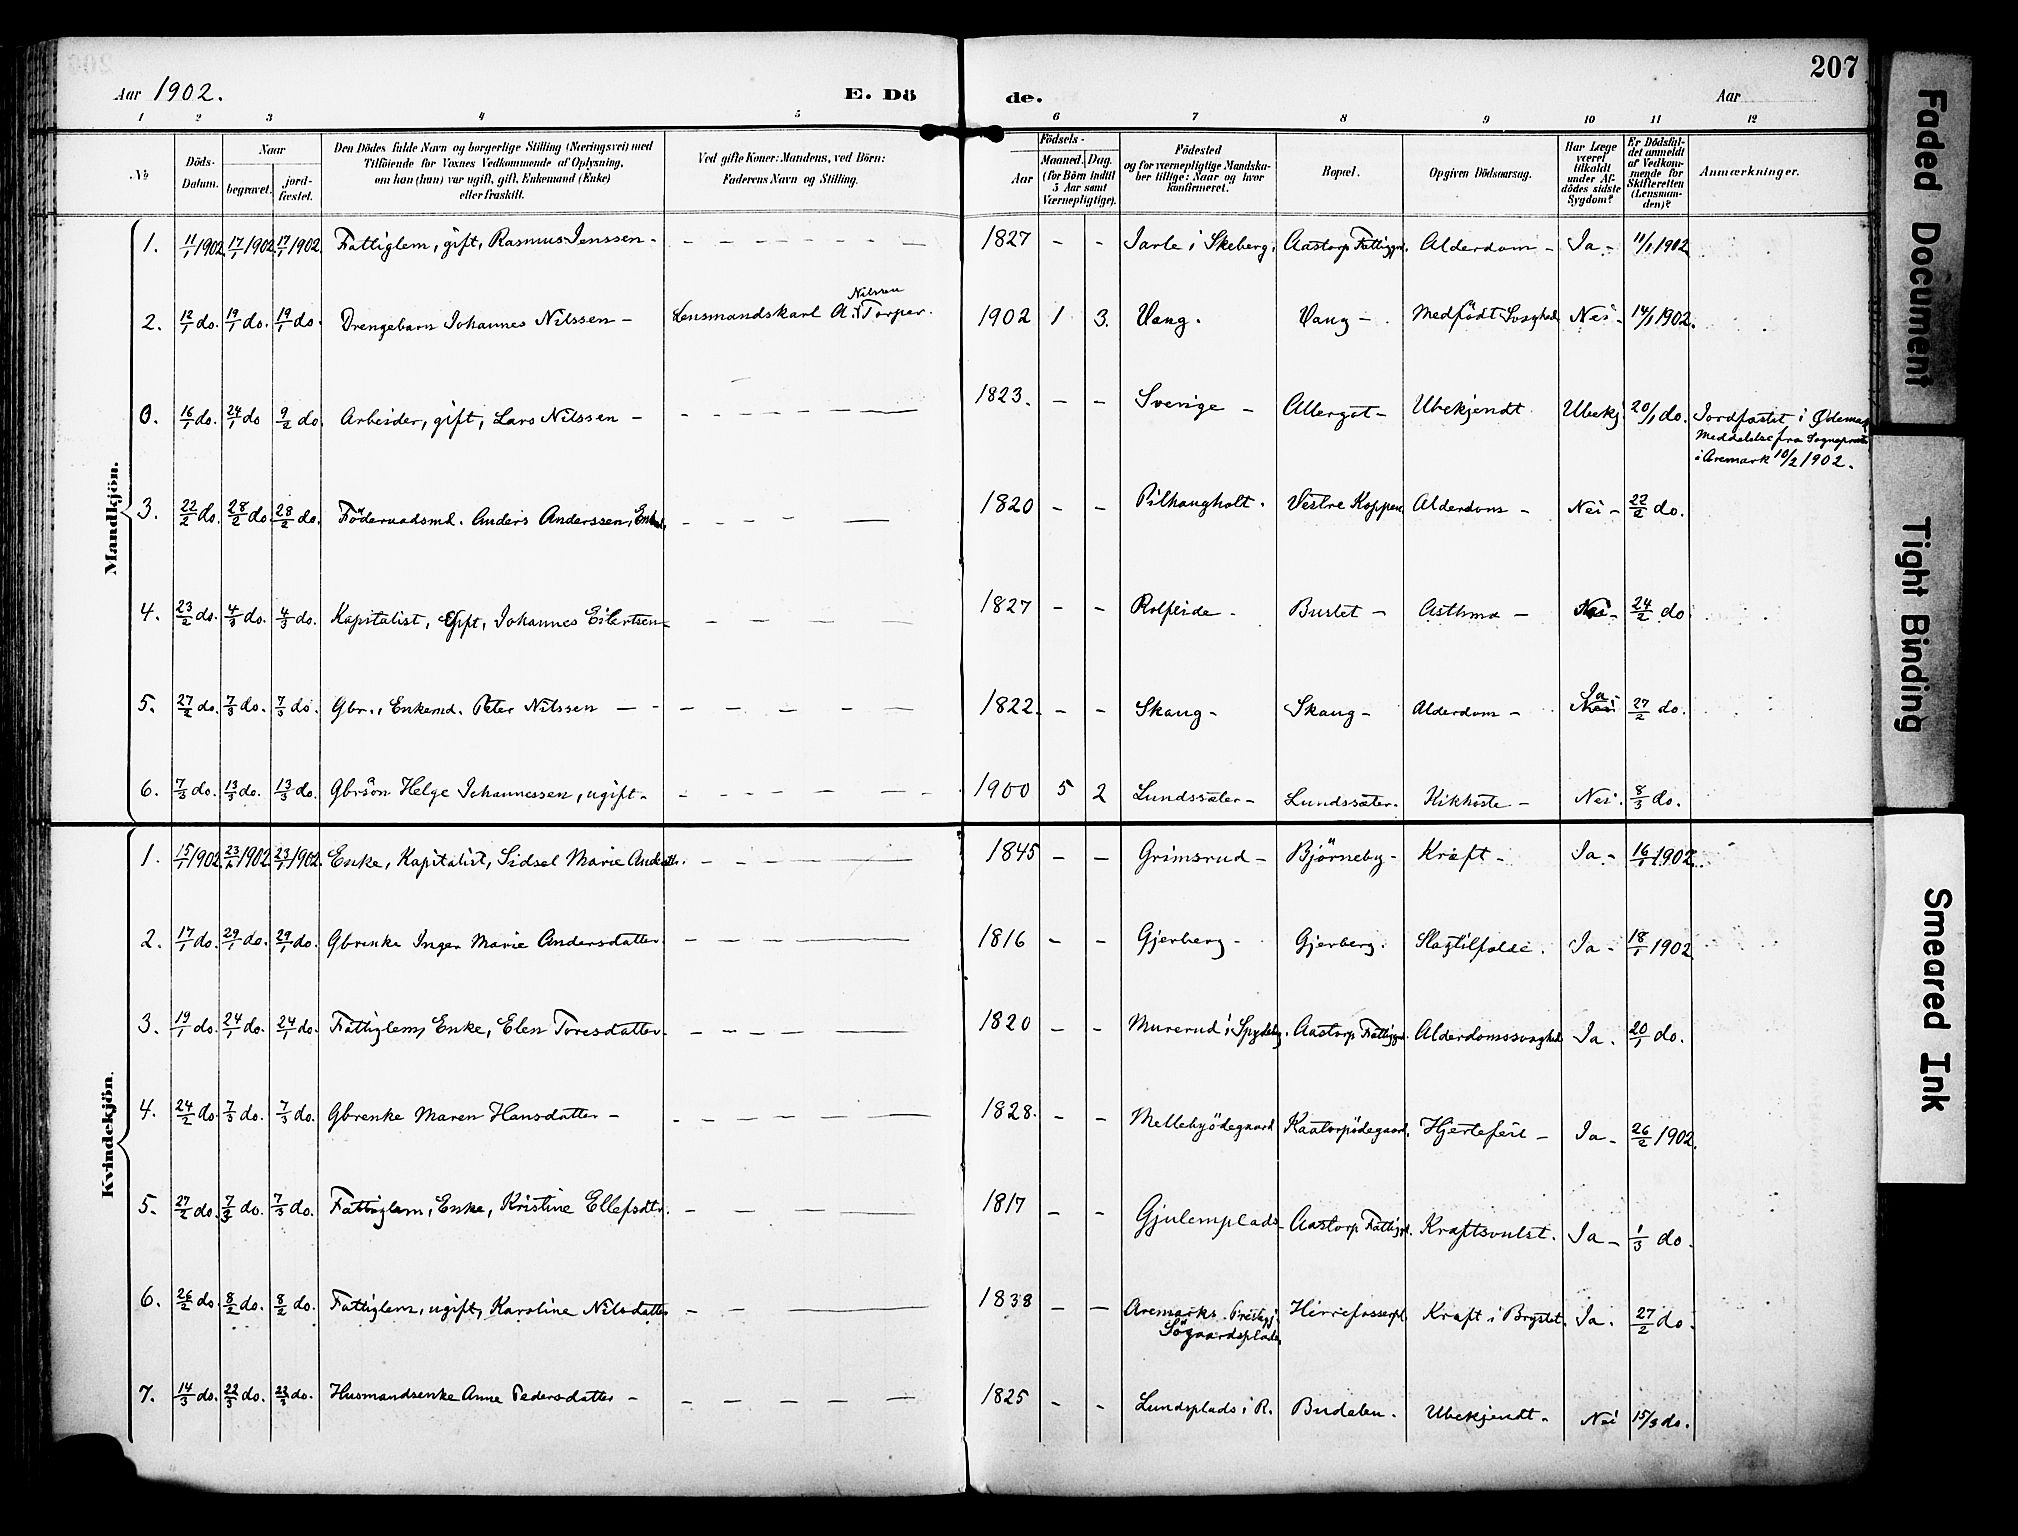 207
Aar 1902.
E. Dö de.
Aar
1 2 3 4 5 6 7 8 9 10 11 12
No
Döds-Datum.
Naar
begravet.
jord-fæstet.
Den Dödes fulde Navn og borgerlige Stilling (Næringsvei) med
Tilföiende for Voxnes Vedkommende af Oplysning,
om han (hun) var ugift, gift, Enkemand (Enke)
eller fraskilt.
Ved gifte Koner: Mandens, ved Börn:
Faderens Navn og Stilling.
Födsels-
Aar
Maaned. Dag.
(for Börn indtil
5 Aar samt
Værnepligtige).
Födested
og for værnepligtige Mandska-
ber tillige: Naar og hvor
konfirmeret.
Bopæl.
Opgiven Dödsaarsag.
Har Læge
været
tilkaldt
under Af-
dödes sidste
Sygdom?
Er Dödsfal-
det anmeldt
af Vedkom-
mende for
Skifteretten
(Lensman-
den)?
Anmærkninger.
Mandkjön.
1. 11/1 1902. 17/1 1902 17/1 1902. Fattiglem, gift, Rasmus Jenssen - 1827 - - Jarle i Skeberg. Aastorp Fattiggd. Alderdom - Ja - 11/1 1902
Nilssen
2. 12/1 do. 19/1 do. 19/1 do. Drengebarn Johannes Nilssen - Lensmandskarl A. Torper. 1902 1 3. Vang. Vang - Medfödt Svaghed Nei - 14/1 1902.
0. 16/1 do. 24/1 do 9/2 do. Arbeider, gift, Lars Nilssen - 1823. - - Sverige - Allergot - Ubekjendt Ubekj 20/1 do. Jordfæstet i Ødemark
Meddelelse fra Sognepræsten
i Aremark 10/2 1902.
3. 22/2 do. 28/2 do 28/2 do. Föderaadsmd. Anders Anderssen, Enkm. 1820 - - Pilhaugholt. Vestre Koppen Alderdom - Nei - 22/2 do.
4. 23/2 do. 4/3 do. 4/3 do. Kapitalist, Gift, Johannes Eilertsen - 1827 - - Rolfeide - Bustet - Asthma - Nei - 24/2 do
5. 27/2 do. 7/3 do. 7/3 do. Gbr., Enkemd. Peter Nilssen - 1822. - - Skaug - Skaug - Alderdom - Ja Nei 27/2 do.
6. 7/3 do. 13/3 do. 13/3 do. Gbrsön Helge Johannessen, ugift - 1900 5 2 Lundssæter - Lundssæter. Kikhoste - Nei. 8/3 do.
Kvindekjön.
1. 15/1 1902. 23/1 1902. 23/1 1902. Enke, Kapitalist, Sidsel Marie Andersdtr. 1845 - - Grimsrud - Bjørneby - Kræft - Ja - 16/1 1902.
2. 17/1 do. 29/1 do. 29/1 do. Gbrenke Inger Marie Andersdatter. 1816 - - Gjerberg - Gjerberg. Slagtilfælde. Ja - 18/1 1902
3. 19/1 do. 24/1 do. 24/1 do. Fattiglem, Enke, Elen Toresdatter. 1820 - - Murerud i Spydeberg. Aastorp Fattiggd. Alderdomssvaghed Ja. 20/1 do.
4. 24/2 do. 7/3 do. 7/3 do. Gbrenke Maren Hansdatter - 1828. - - Mellebyödegaard Kaatorpödegaard. Hjertefeil - Ja - 26/2 1902.
5. 27/2 do. 7/3 do. 7/3 do. Fattiglem, Enke, Kristine Ellefsdtr. 1817 - - Gjulemplads - Aastorp Fattiggd. Kræftsvulst. Ja - 1/3 do.
6. 26/2 do. 8/2 do. 8/2 do. Fattiglem, ugift, Karoline Nilsdatter 1838 - - Aremarks Prestegj.
Søgaardsplads Hirrefosserpl. Kræft i Brystet. Ja. 27/2 do.
7. 14/3 do. 22/3 do. 22/3 do. Husmandsenke Anne Pedersdatter - 1825 - - Lundsplads i R. Budalen. Ubekjendt. Nei 15/3 do.
Faded Document
Tight Binding
Smeared Ink